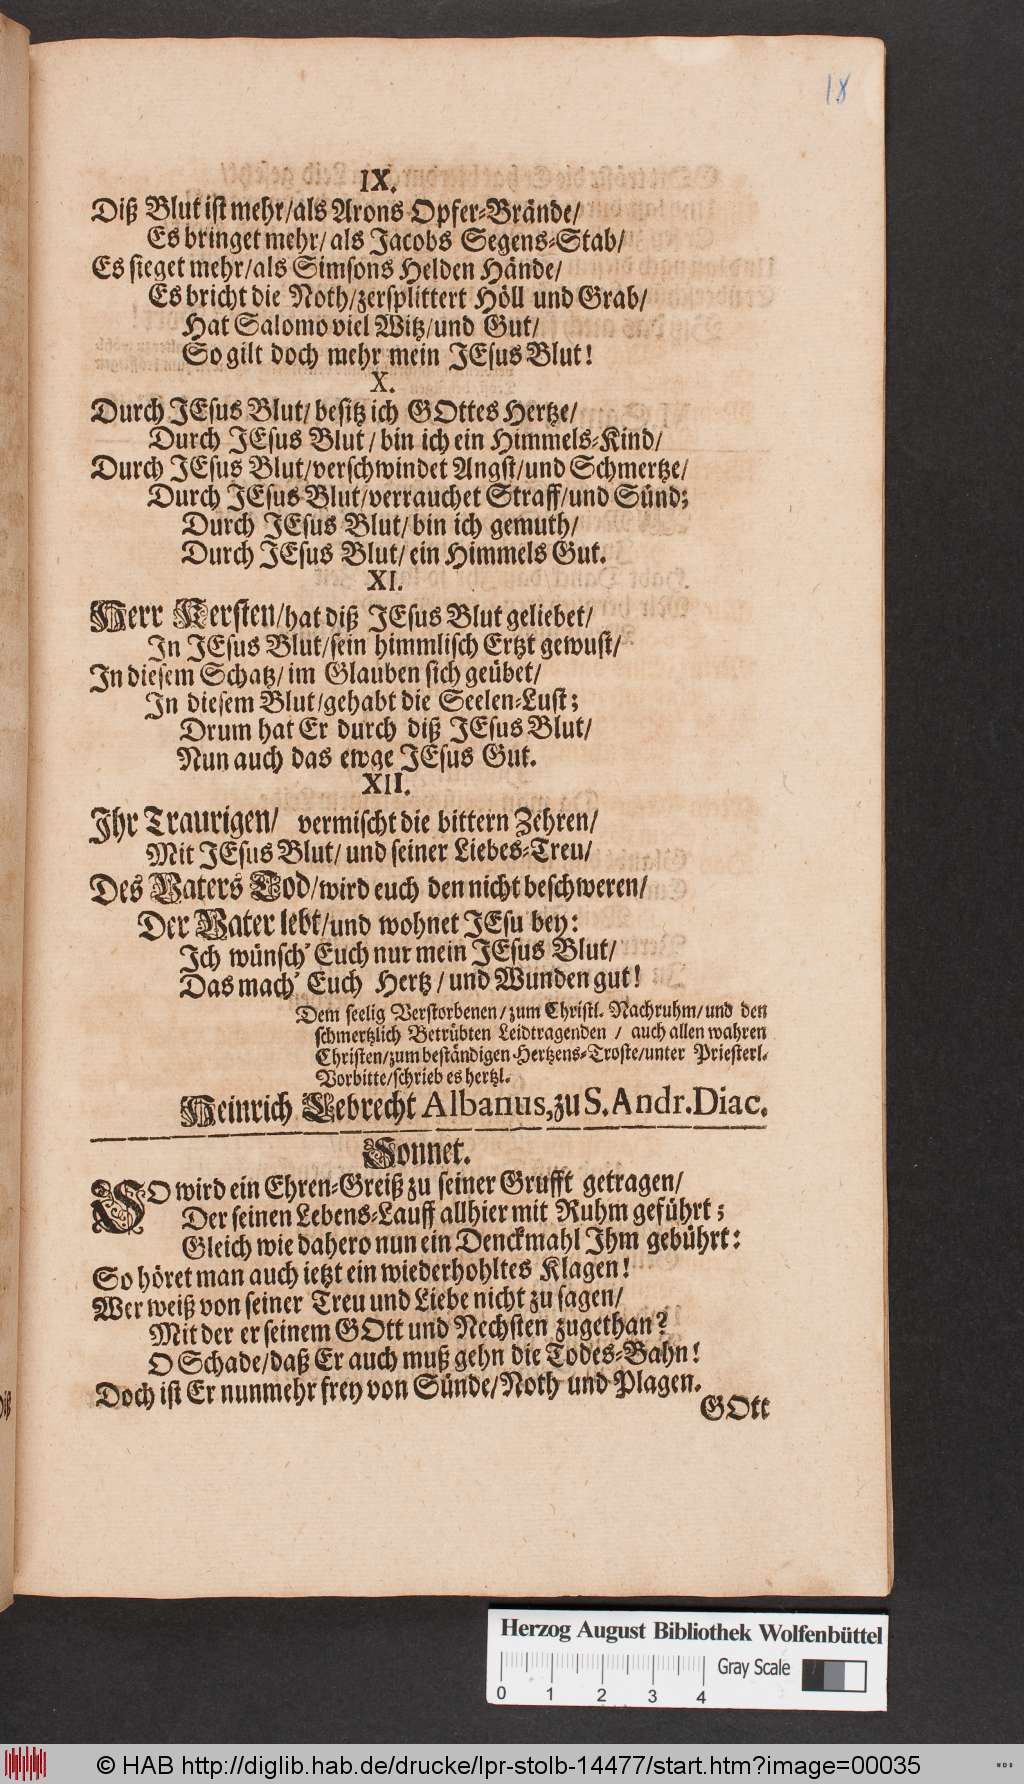 18
IX.
Diß Blut ist mehr/als Arons Opfer-Brände/
Es bringet mehr/ als Jacobs Segens-Stab/
Es sieget mehr/als Simsons Helden Hände/
Es bricht die Noth/zersplittert Höll und Grab/
Hat Salomo viel Witz/und Gut/
So gilt doch mehr mein JEsus Blut!
X.
Durch JEsus Blut/ besitz ich GOttes Hertze/
Durch JEsus Blut/ bin ich ein Himmels-Kind/
Durch JEsus Blut/verschwindet Angst/und Schmertze/
Durch JEsus Blut/verrauchet Straff/und Sünd;
Durch JEsus Blut/ bin ich gemuth/
Durch JEsus Blut/ ein Himmels Gut.
XI.
Herr Kersten/hat diß JEsus Blut geliebet/
In JEsus Blut/sein himmlisch Ertzt gewust/
In diesem Schatz/ im Glauben sich geübet/
In diesem Blut/gehabt die Seelen-Lust;
Drum hat Er durch diß JEsus Blut/
Nun auch das ewge JEsus Gut.
XII.
Ihr Traurigen/ vermischt die bittern Zehren/
Mit JEsus Blut/ und seiner Liebes-Treu/
Des Vaters Tod/wird euch den nicht beschweren/
Der Vater lebt/und wohnet JEsu bey:
Ich wünsch' Euch nur mein JEsus Blut/
Das mach' Euch Hertz/ und Wunden gut!
Dem seelig Verstorbenen/zum Christl. Nachruhm/und den
schmertzlich Betrübten Leidtragenden / auch allen wahren
Christen/zum beständigen Hertzens-Troste/unter Priesterl.
Vorbitte/schrieb es hertzl.
Heinrich Lebrecht Albanus, zu S. Andr. Diac.
Sonnet.
SO wird ein Ehren-Greiß zu seiner Grufft getragen/
Der seinen Lebens-Lauff allhier mit Ruhm geführt;
Gleich wie dahero nun ein Denckmahl Ihm gebührt:
So höret man auch ietzt ein wiederhohltes Klagen!
Wer weiß von seiner Treu und Liebe nicht zu sagen/
Mit der er seinem GOtt und Nechsten zugethan?
O Schade/daß Er auch muß gehn die Todes-Bahn!
Doch ist Er nunmehr frey von Sünde/Noth und Plagen.
GOtt
Herzog August Bibliothek Wolfenbüttel
Gray Scale
0 1 2 3 4
© HAB http://diglib.hab.de/drucke/lpr-stolb-14477/start.htm?image=00035